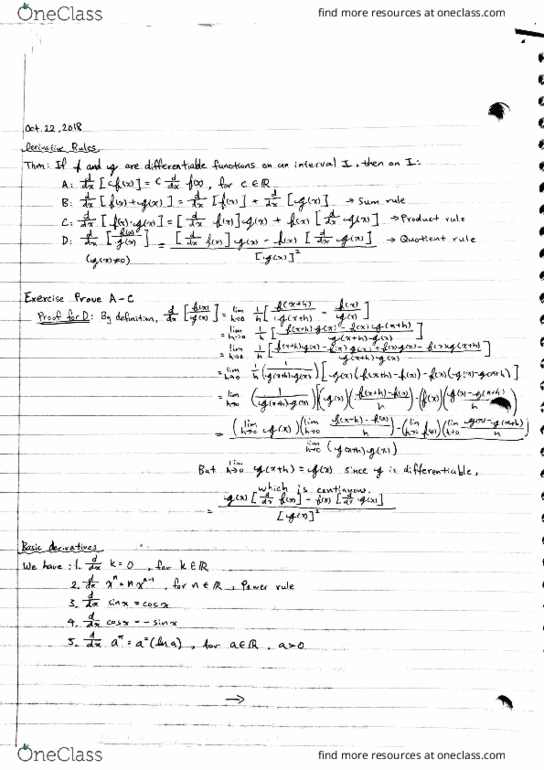 OneClass
find more resources at oneclass.com
Oct. 22, 2018
Derivative Rules
Thm: If f and g are differentiable functions on an interval I, then on I:
A: d/dx [cf(x)] = c d/dx f(x), for c∈ℝ
B: d/dx [f(x)+g(x)] = d/dx [f(x)] + d/dx [g(x)] → Sum rule
C: d/dx [f(x)·g(x)] = [d/dx f(x)] g(x) + f(x) [d/dx g(x)] → Product rule
D: d/dx [f(x)/g(x)] = [d/dx f(x)] g(x) - f(x) [d/dx g(x)] / [g(x)]² → Quotient rule
(g(x)≠0)
Exercise Prove A-C
Proof for D: By definition, d/dx [f(x)/g(x)] = lim h→0 1/h [f(x+h)/g(x+h) - f(x)/g(x)]
= lim h→0 1/h [f(x+h)g(x) - f(x)g(x+h) / g(x+h)g(x)]
= lim h→0 1/h [f(x+h)g(x) - f(x)g(x) + f(x)g(x) - f(x)g(x+h) / g(x+h)g(x)]
= lim h→0 1/h (1/g(x+h)g(x)) [g(x)(f(x+h)-f(x)) - f(x)(g(x)-g(x+h)]
= lim h→0 (1/g(x+h)g(x)) [(g(x))(f(x+h)-f(x)/h) - (f(x))(g(x)-g(x+h)/h)
= (lim h→0 g(x))(lim h→0 f(x-h)-f(x)/h) - (lim h→0 f(x))(lim h→0 g(x)-g(x+h)/h) / lim h→0 (g(x+h)g(x))
But lim h→0 g(x+h) = g(x) since g is differentiable,
which is continuous.
= g(x) [d/dx f(x)] - f(x) [d/dx g(x)] / [g(x)]²
Basic derivatives
We have: 1. d/dx k = 0, for k∈ℝ
2. d/dx xⁿ = n xⁿ⁻¹, for n∈ℝ, Power rule
3. d/dx sinx = cosx
4. d/dx cosx = -sinx
5. d/dx aˣ = aˣ(ln a), for a∈ℝ, a>0
→
OneClass
find more resources at oneclass.com